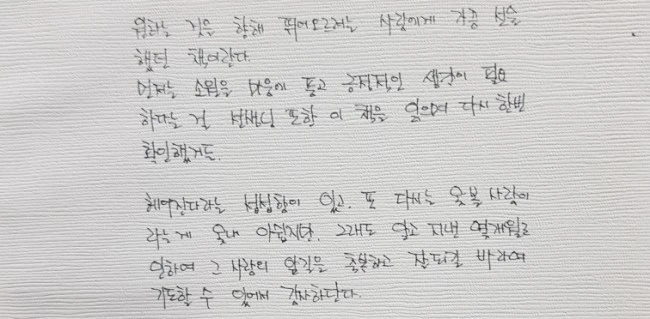 원하는 것을 향해 뛰어오르려는 사람에게 자중 선을
했던 책이란다.
먼저는 소원을 마음에 품고 긍정적인 생각이 필요
하다는 걸 선생님 또한 이 책을 읽으며 다시 한번
확인했거든.
헤어진다라는 섭섭함이 있고, 또 다시는 못볼 사람이
라는게 못내 아쉽지만. 그래도 알고 지낸 몇개월로
인하여 그 사람의 앞길을 축복하고 잘되길 바라며
기도할 수 있어서 감사하단다.